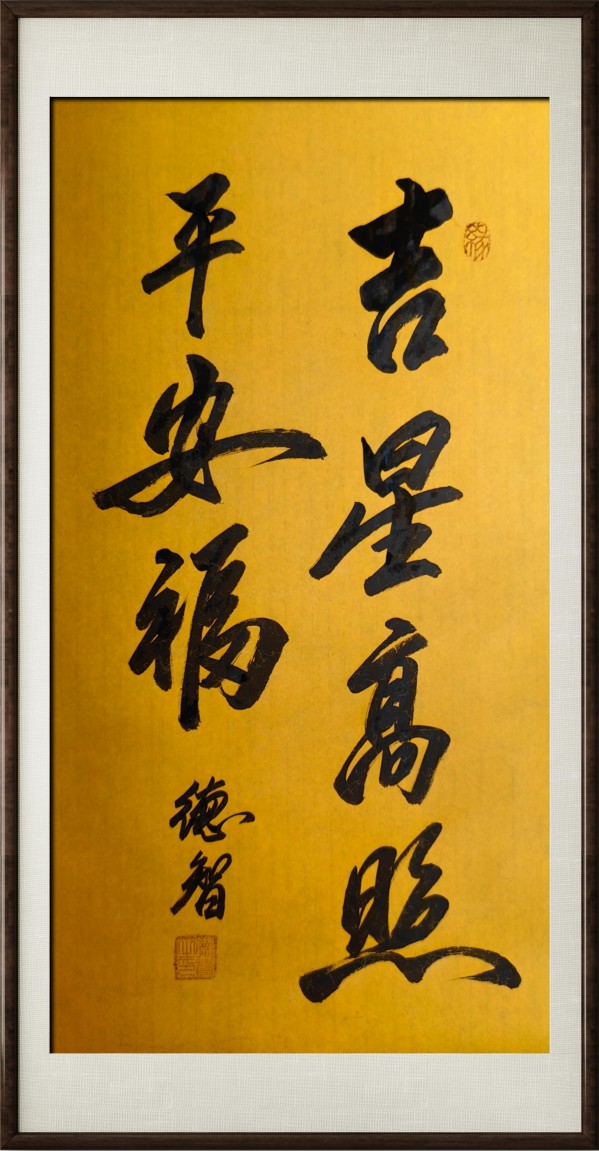 吉星高照
平安福
德智